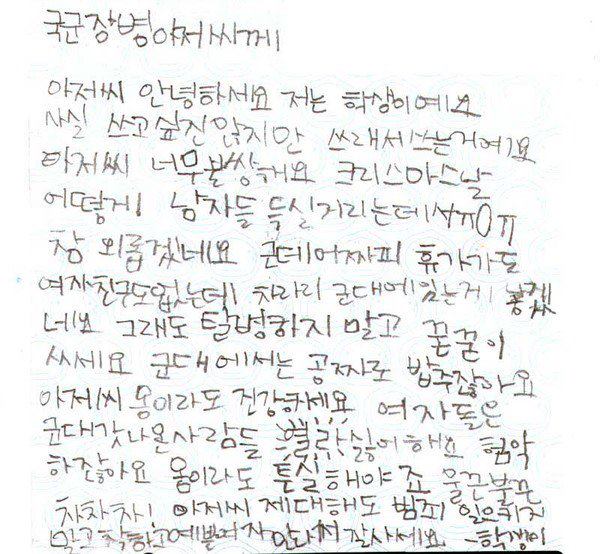 국군장병아저씨께
아저씨 안녕하세요 저는 학생이에요
사실 쓰고 싶진 않지만 쓰래서쓰는거에요
아저씨 너무불쌍해요 크리스마스날
어떻게 남자들 득실거리는데서ㅠ0ㅠ
참 외롭겠네요 군데어짜피 휴가가도
여자친구도없는데 차라리 군대에있는게 좋겠
네요 그래도 탈병하지 말고 꾿꾿이
씨세요 군대에서는 공짜로 밥주잖아요
아저씨 몸이라도 건강하세요 여자들은
군대갓나온사람들 별라싫어해요 험악
하잖아요 몸이라도 튼실해야죠 울끈불끈
차차차! 아저씨 제대해도 범죄 일으키지
말고 착하고예쁜여자만나서잘사세요 -학생이